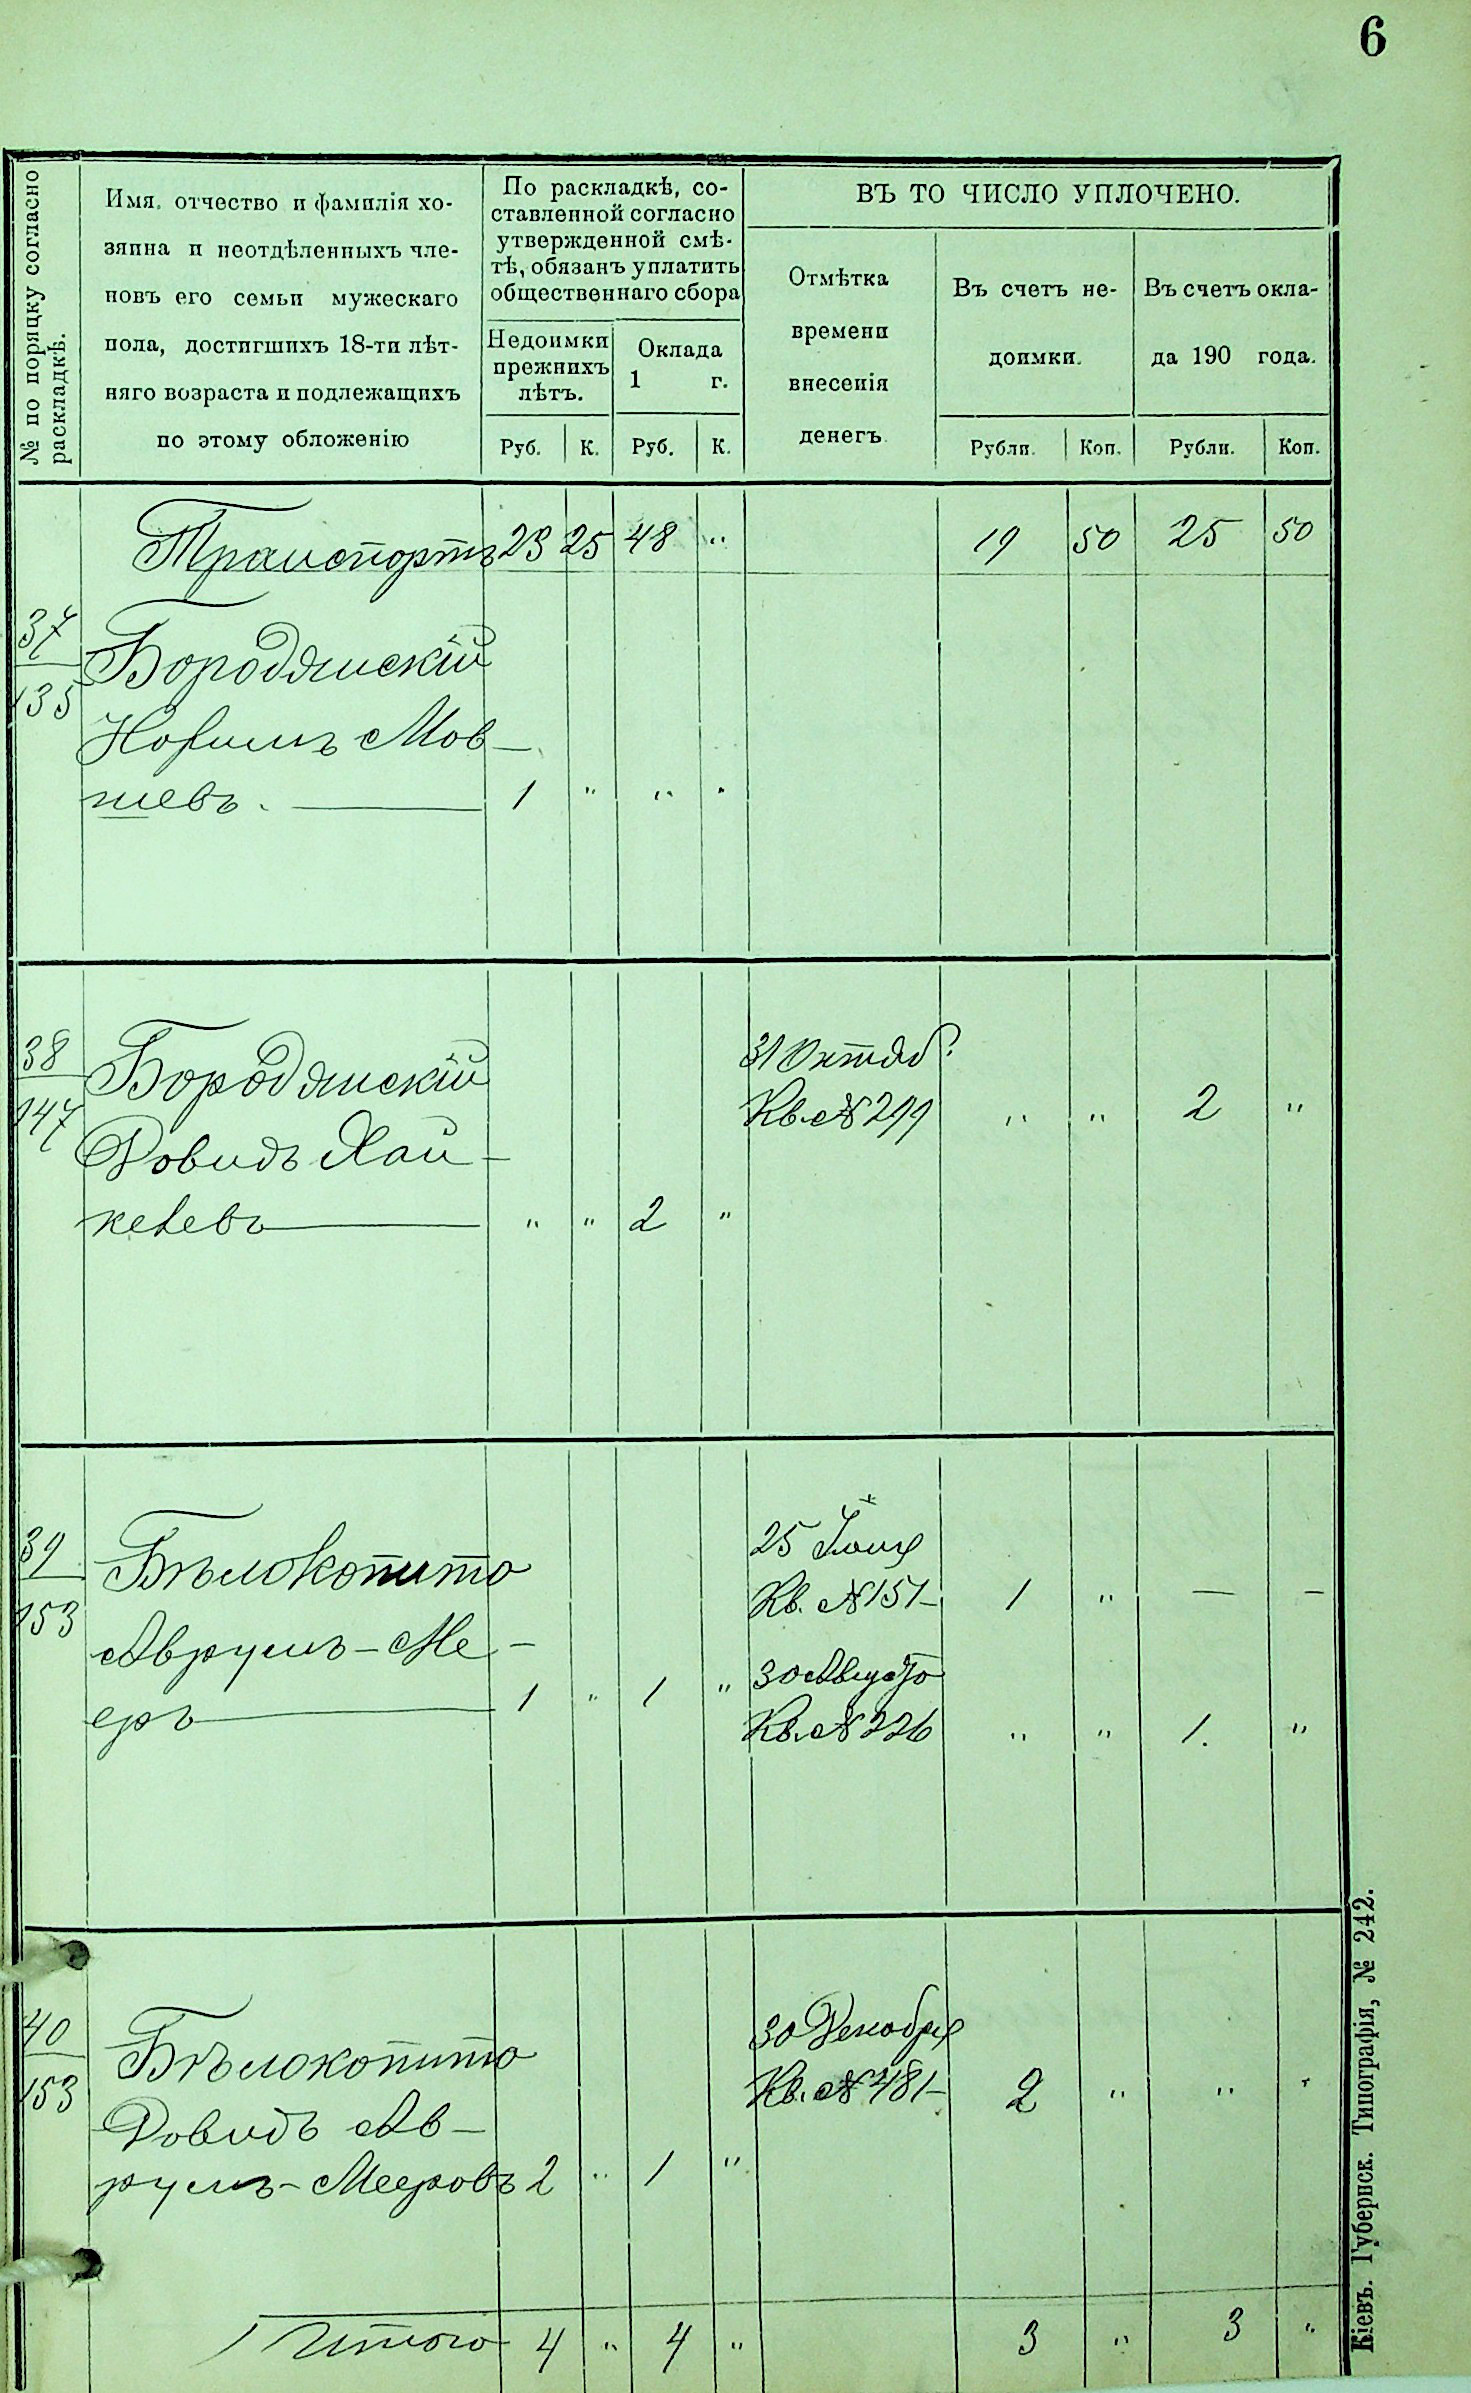 6
№ по порядку согласно
раскладкѣ.
Имя, отчество и фамилія хо-
зяина и неотдѣленныхъ чле-
новъ его семьи мужескаго
пола, достигшихъ 18-ти лѣт-
няго возраста и подлежащихъ
по этому обложенію
По раскладкѣ, со-
ставленной согласно
утвержденной смѣ-
тѣ, обязанъ уплатить
общественнаго сбора
Недоимки
прежнихъ
лѣтъ.
Оклада
1 г.
Руб. К. Руб. К.
ВЪ ТО ЧИСЛО УПЛОЧЕНО.
Отмѣтка
времени
внесенія
денегъ
Въ счетъ не-
доимки.
Въ счетъ окла-
да 190 года.
Рубли. Коп. Рубли. Коп.
Транспортъ 23 25 48 " 19 50 25 50
37
135
Бородянскій
Нохимъ Мов-
шевъ. 1 " " "
38
147
Бородянскій
Довидъ Хай-
келевъ " " 2 "
31 Октяб.
Кв. № 299 " " 2 "
39
153
Бѣлокопито
Аврумъ-Ме-
еръ 1 " 1 "
25 Іюня
Кв. № 151- 1 " — —
30 Августа
Кв. № 226 " " 1. "
40
153
Бѣлокопито
Довидъ Ав-
румъ-Мееровъ 2 " 1 "
30 Декабря
Кв. № 481- 2 " " "
Итого 4 " 4 " 3 " 3 "
Кіевъ. Губернск. Типографія, № 242.